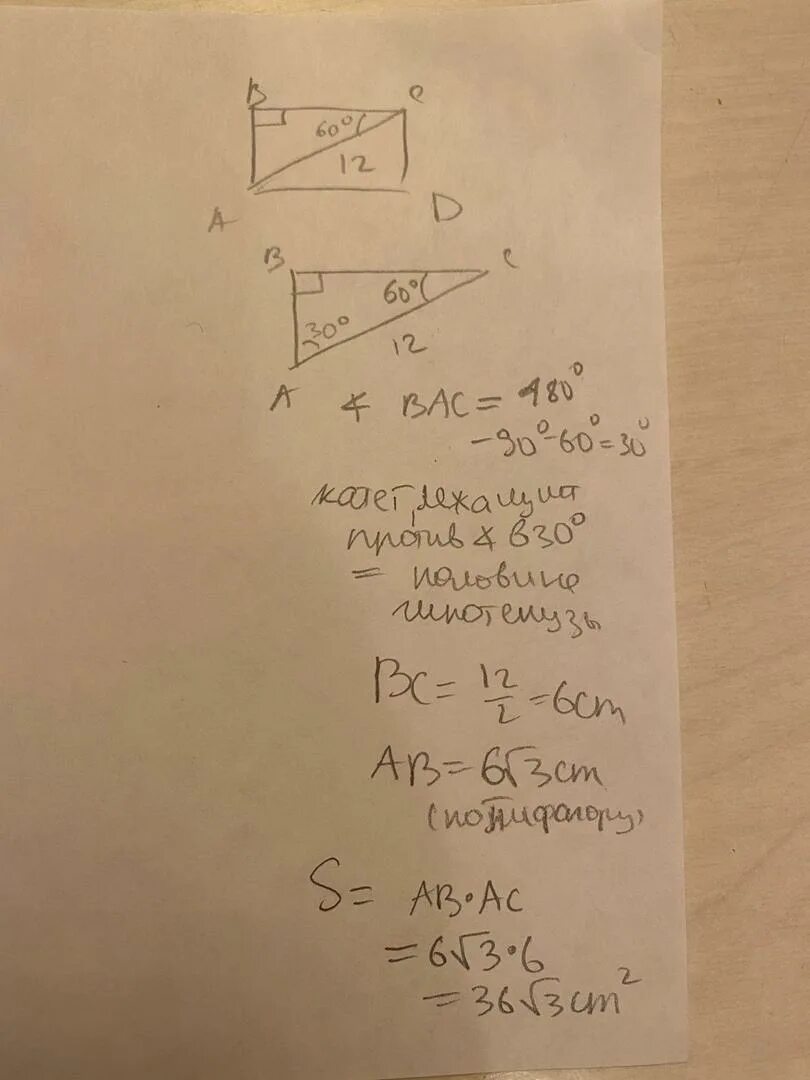 B C
60°
12
A D
B C
60°
30°
12
A
∢ BAC = 180°
-90°-60°=30°
катет, лежащий
против ∢ в 30°
= половине
гипотенузы
BC = 12/2 = 6cm
AB = 6√3 cm
(по т. Пифагору)
S = AB·AC
= 6√3·6
= 36√3 cm²